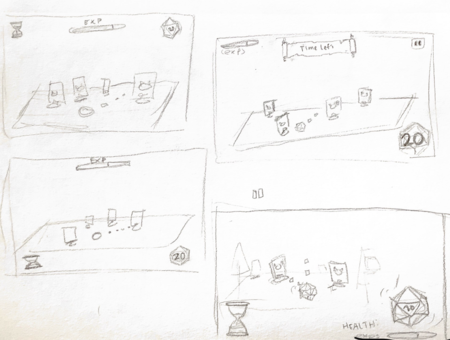 EXP
20
(EXP)
Time Left
20
EXP
20
20
HEALTH: